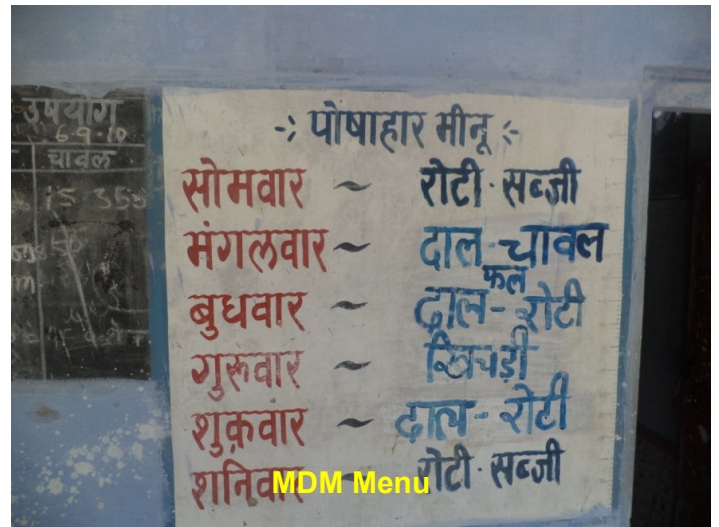 उपयोग
6-9-10
चावल
15.358
-: पोषाहार मीनू :-
सोमवार ~ रोटी.सब्जी
मंगलवार ~ दाल-चावल
फल
बुधवार ~ दाल-रोटी
गुरुवार ~ खिचड़ी
शुक्रवार ~ दाल-रोटी
शनिवार ~ रोटी.सब्जी
MDM Menu